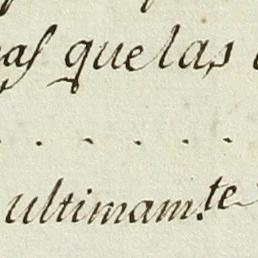 as que las
. . . . . .
ultimam.te